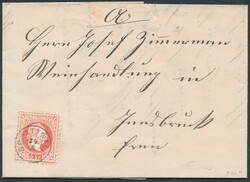 Herrn Josef Zimmerman
Weinhandlung in
Innsbruck